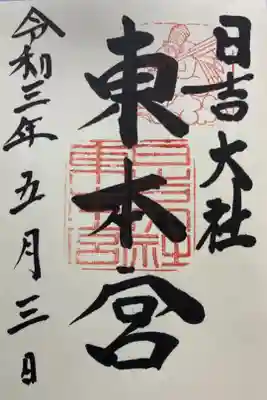 日吉大社
東本宮
令和三年五月三日